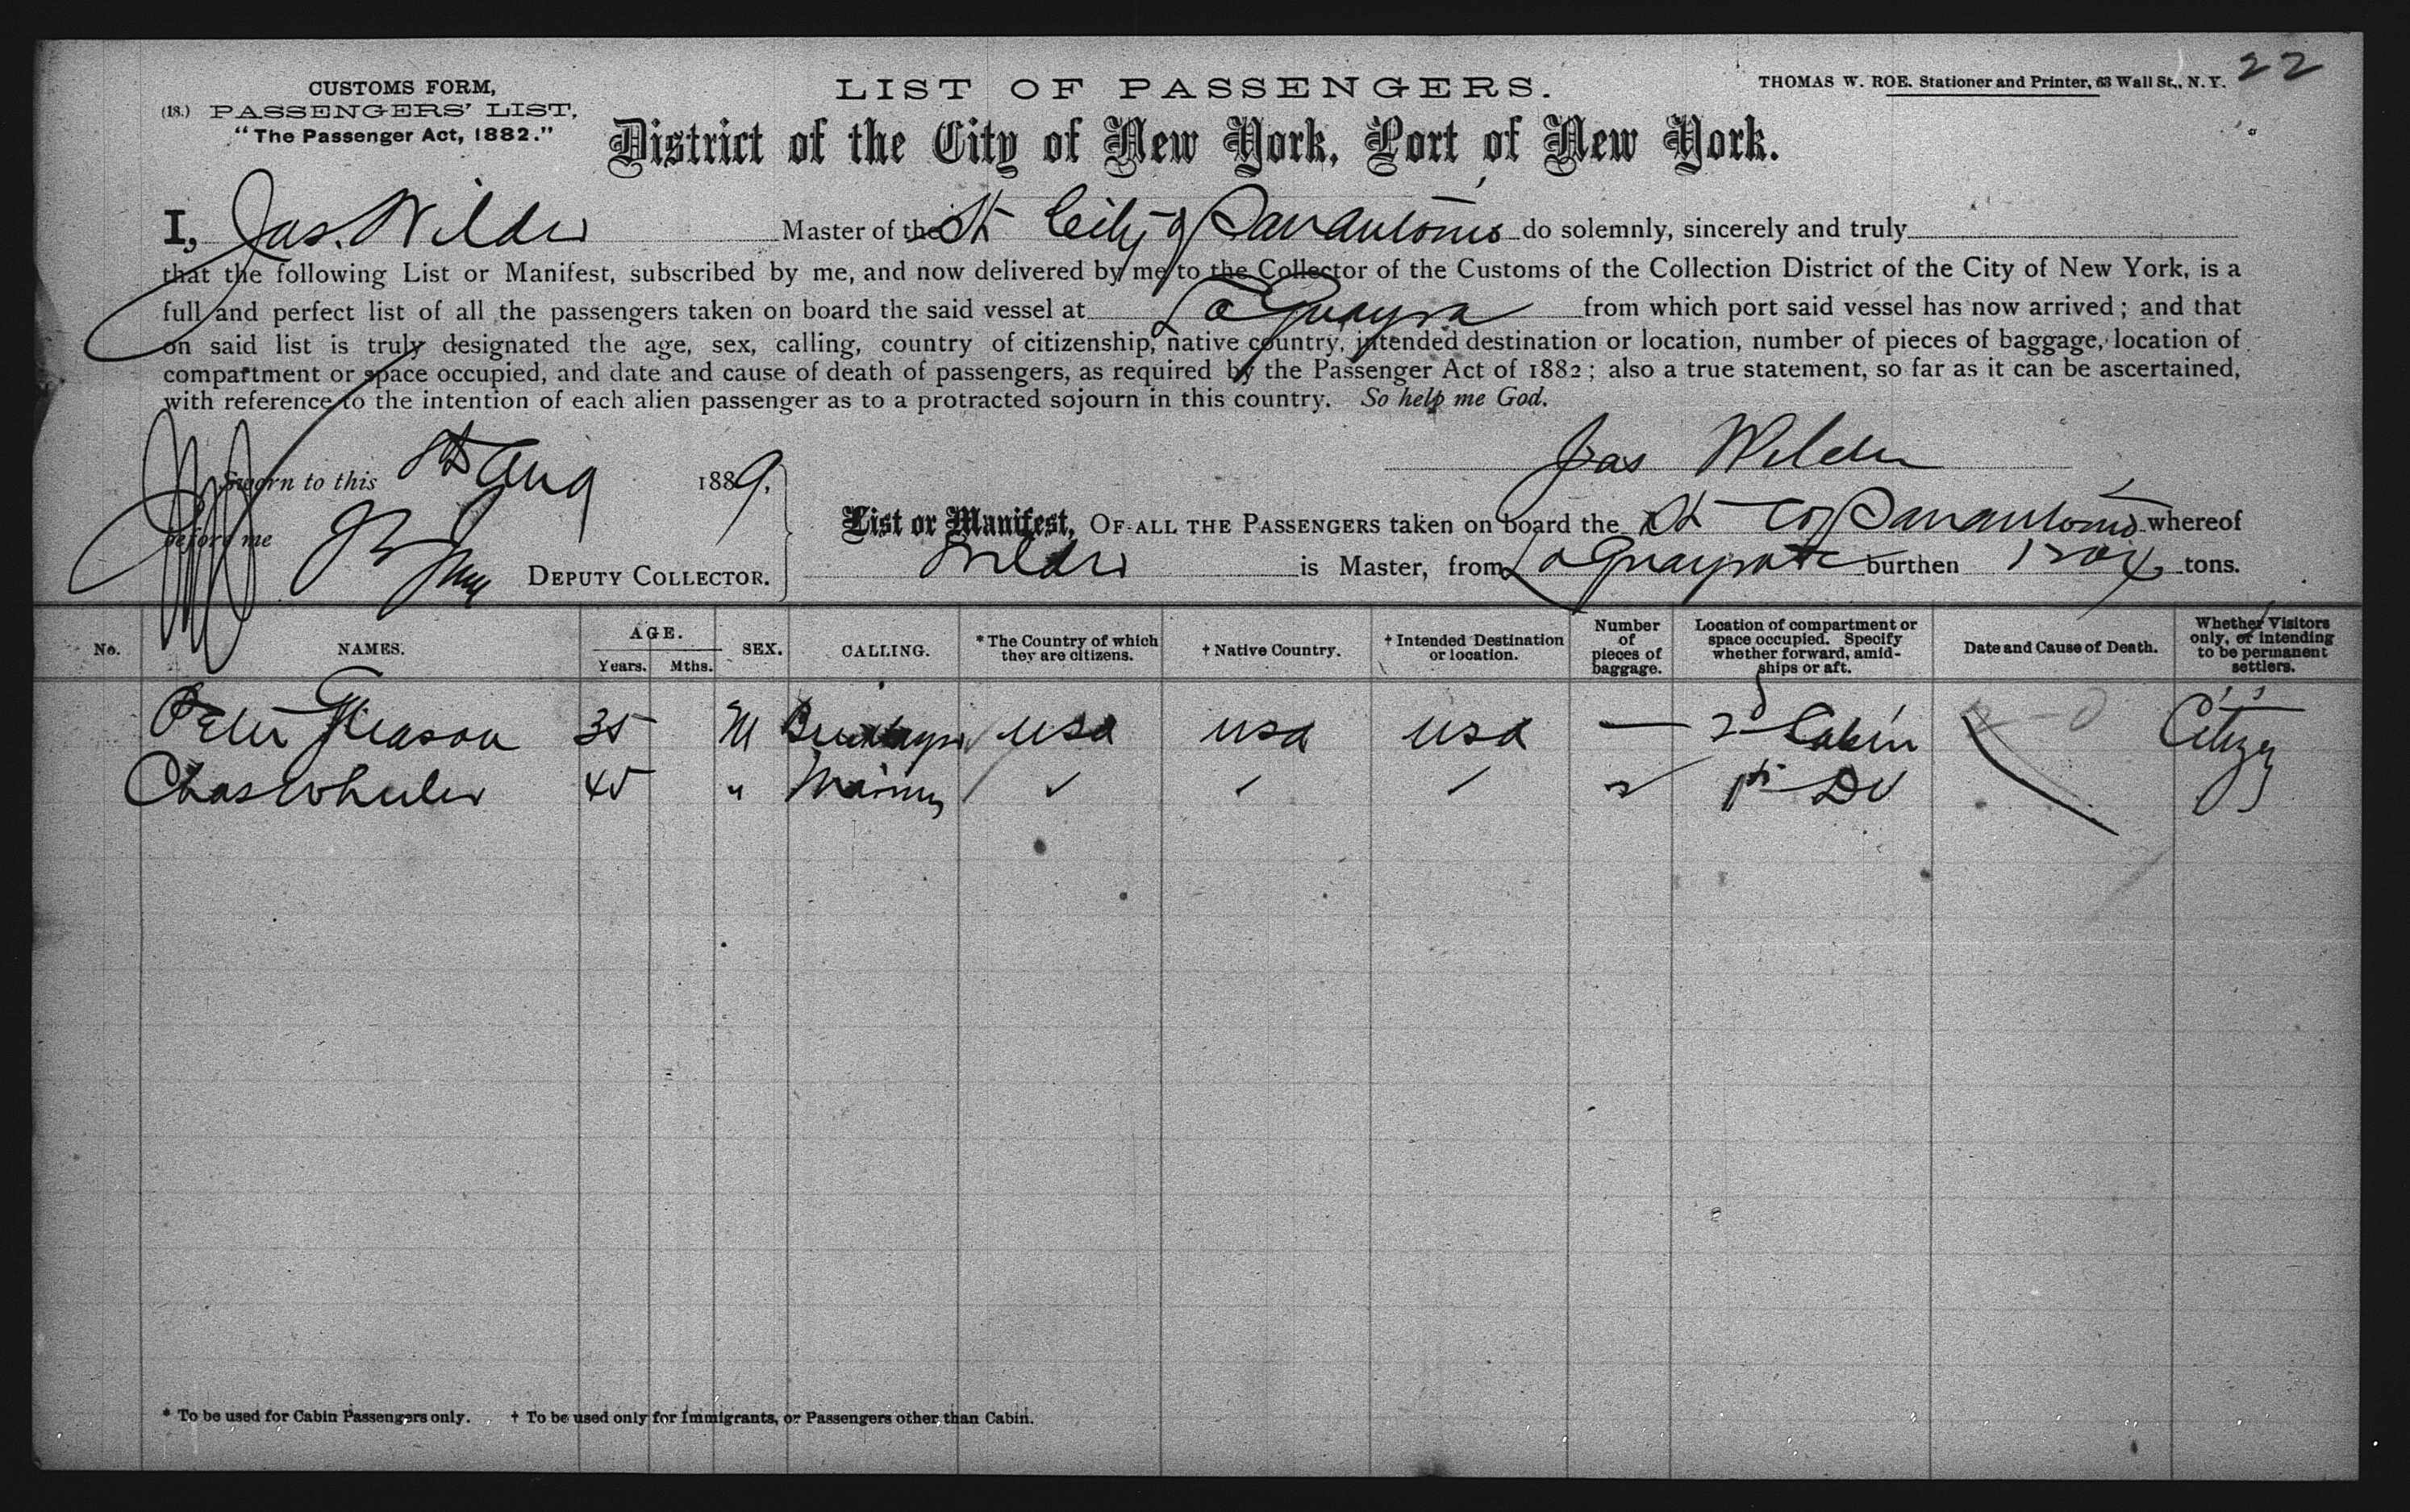 22
CUSTOMS FORM,
(18.) PASSENGERS' LIST,
"The Passenger Act, 1882."
LIST OF PASSENGERS.
THOMAS W. ROE. Stationer and Printer, 63 Wall St., N. Y.
District of the City of New York, Port of New York.
I, Jas. Wilder Master of the St City of San Antonio do solemnly, sincerely and truly
that the following List or Manifest, subscribed by me, and now delivered by me to the Collector of the Customs of the Collection District of the City of New York, is a
full and perfect list of all the passengers taken on board the said vessel at La Guayra from which port said vessel has now arrived; and that
on said list is truly designated the age, sex, calling, country of citizenship, native country, intended destination or location, number of pieces of baggage, location of
compartment or space occupied, and date and cause of death of passengers, as required by the Passenger Act of 1882; also a true statement, so far as it can be ascertained,
with reference to the intention of each alien passenger as to a protracted sojourn in this country. So help me God.
Jas Wilder
Sworn to this Aug 1889.
before me
DEPUTY COLLECTOR.
List or Manifest, OF ALL THE PASSENGERS taken on board the St C of San Antonio whereof
Wilder is Master, from La Guayra burthen tons.
No. NAMES. AGE. Years. Mths. SEX. CALLING. * The Country of which they are citizens. † Native Country. † Intended Destination or location. Number of pieces of baggage. Location of compartment or space occupied. Specify whether forward, amidships or aft. Date and Cause of Death. Whether Visitors only, or intending to be permanent settlers.
Peter Gleason 35 M USA USA USA — 2d Cabin Citizen
Chas Wheeler 45 " ✓ ✓ ✓ 1st Do
* To be used for Cabin Passengers only. † To be used only for Immigrants, or Passengers other than Cabin.